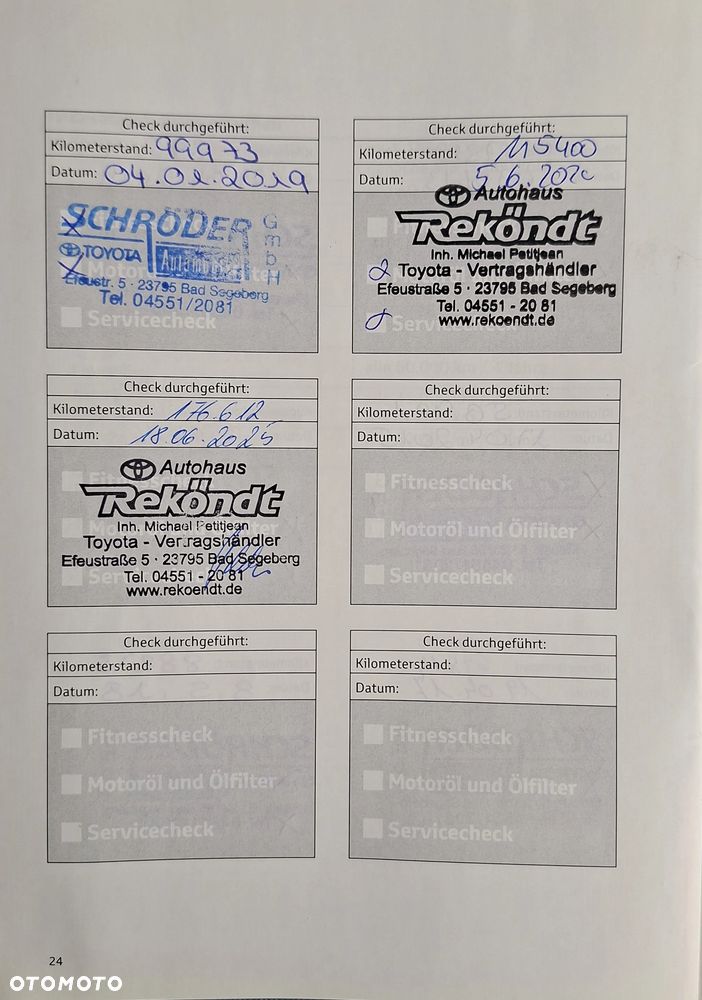 Check durchgeführt:
Kilometerstand: 99973
Datum: 04.01.2019
SCHRÖDER
GmbH
TOYOTA
Efeustr. 5 · 23795 Bad Segeberg
Tel. 04551/2081
Servicecheck
Check durchgeführt:
Kilometerstand: 115400
Datum: 5.6.2020
Autohaus
Reköndt
Inh. Michael Petitjean
Toyota - Vertragshändler
Efeustraße 5 · 23795 Bad Segeberg
Tel. 04551 - 20 81
www.rekoendt.de
Servicecheck
Check durchgeführt:
Kilometerstand: 176.612
Datum: 18.06.2025
Fitnesscheck
Autohaus
Reköndt
Inh. Michael Petitjean
Toyota - Vertragshändler
Efeustraße 5 · 23795 Bad Segeberg
Tel. 04551 - 20 81
www.rekoendt.de
Check durchgeführt:
Kilometerstand:
Datum:
Fitnesscheck
Motoröl und Ölfilter
Servicecheck
Check durchgeführt:
Kilometerstand:
Datum:
Fitnesscheck
Motoröl und Ölfilter
Servicecheck
Check durchgeführt:
Kilometerstand:
Datum:
Fitnesscheck
Motoröl und Ölfilter
Servicecheck
24
OTOMOTO